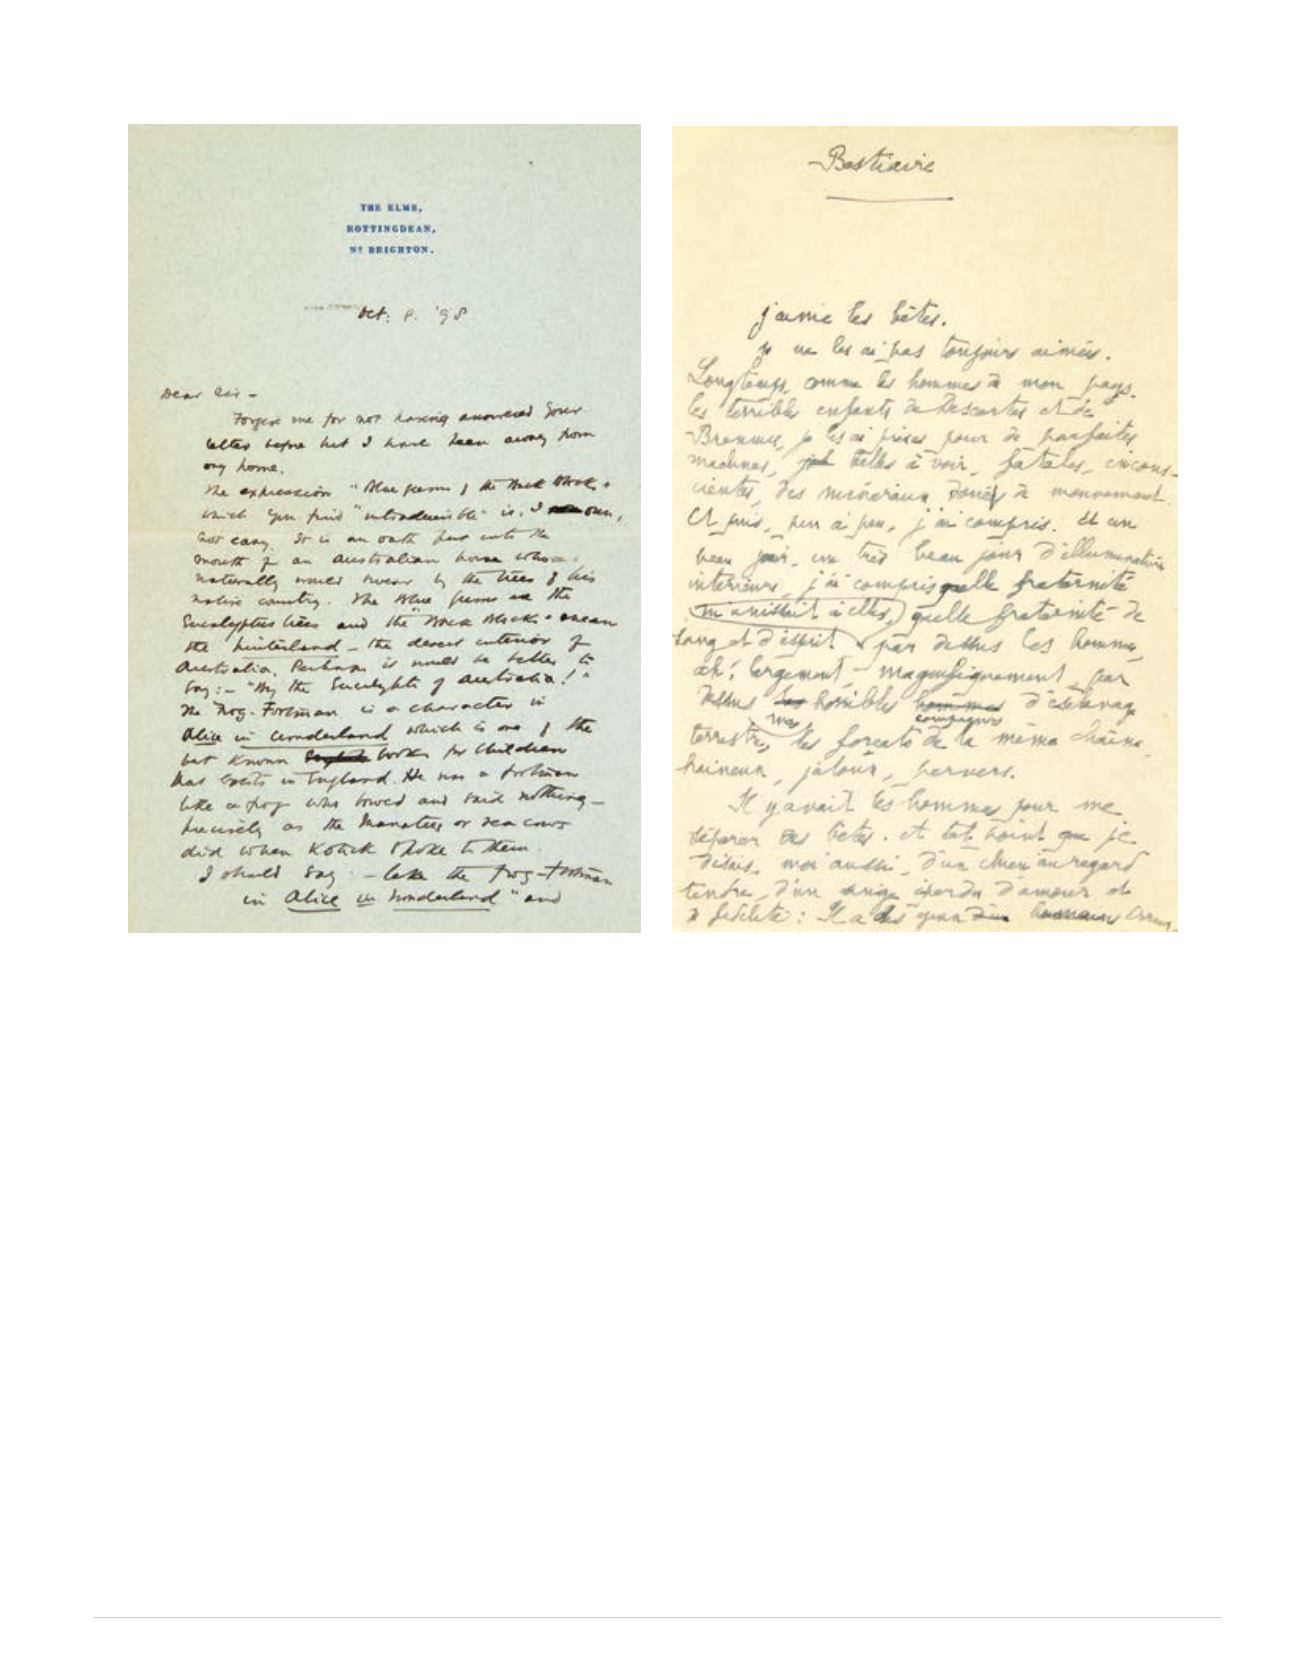 THE ELMS,
ROTTINGDEAN,
Nr BRIGHTON.
Oct: 8. '98
Dear Sir -
Forgive me for not having answered your
letter before but I have been away from
my home.
The expression "Blue gums of the Back Blocks"
which you find "intraduisible" is, I own,
not easy. It is an oath put into the
mouth of an Australian horse who
naturally would swear by the trees of his
native country. The Blue gums are the
Eucalyptus trees and the "Back Blocks" mean
the hinterland - the desert interior of
Australia. Perhaps it would be better to
say: - "By the Eucalypts of Australia!"
The Frog-Footman is a character in
Alice in Wonderland which is one of the
best known English books for children
that exists in England. He was a footman
like a frog who bowed and said nothing -
precisely as the Manatees or sea cows
did when Kotick spoke to them.
I should say: - like the Frog-Footman
in Alice in Wonderland" and
Bestiaire
J'aime les bêtes.
Je ne les ai pas toujours aimées.
Longtemps, comme les hommes de mon pays,
les terribles enfants de Descartes et de
je les ai prises pour de parfaites
machines, belles à voir, fatales, incons-
cientes, des minéraux doués de mouvement.
Et puis, peu à peu, j'ai compris. Et un
beau jour, un très beau jour d'illumination
intérieure, j'ai compris quelle fraternité
m'unissait à elles, quelle fraternité de
sang et d'esprit par dessus les hommes,
ah! largement, magnifiquement, par
dessus les horribles hommes d'esclavage
mes compagnons
terrestre, les forçats de la même chaîne,
haineux, jaloux, pervers.
Il y avait les hommes pour me
séparer des bêtes. et tel point que je
disais, moi aussi, d'un chien au regard
tendre, d'un singe éperdu d'amour et
de fidélité: Il a des yeux d'un humain